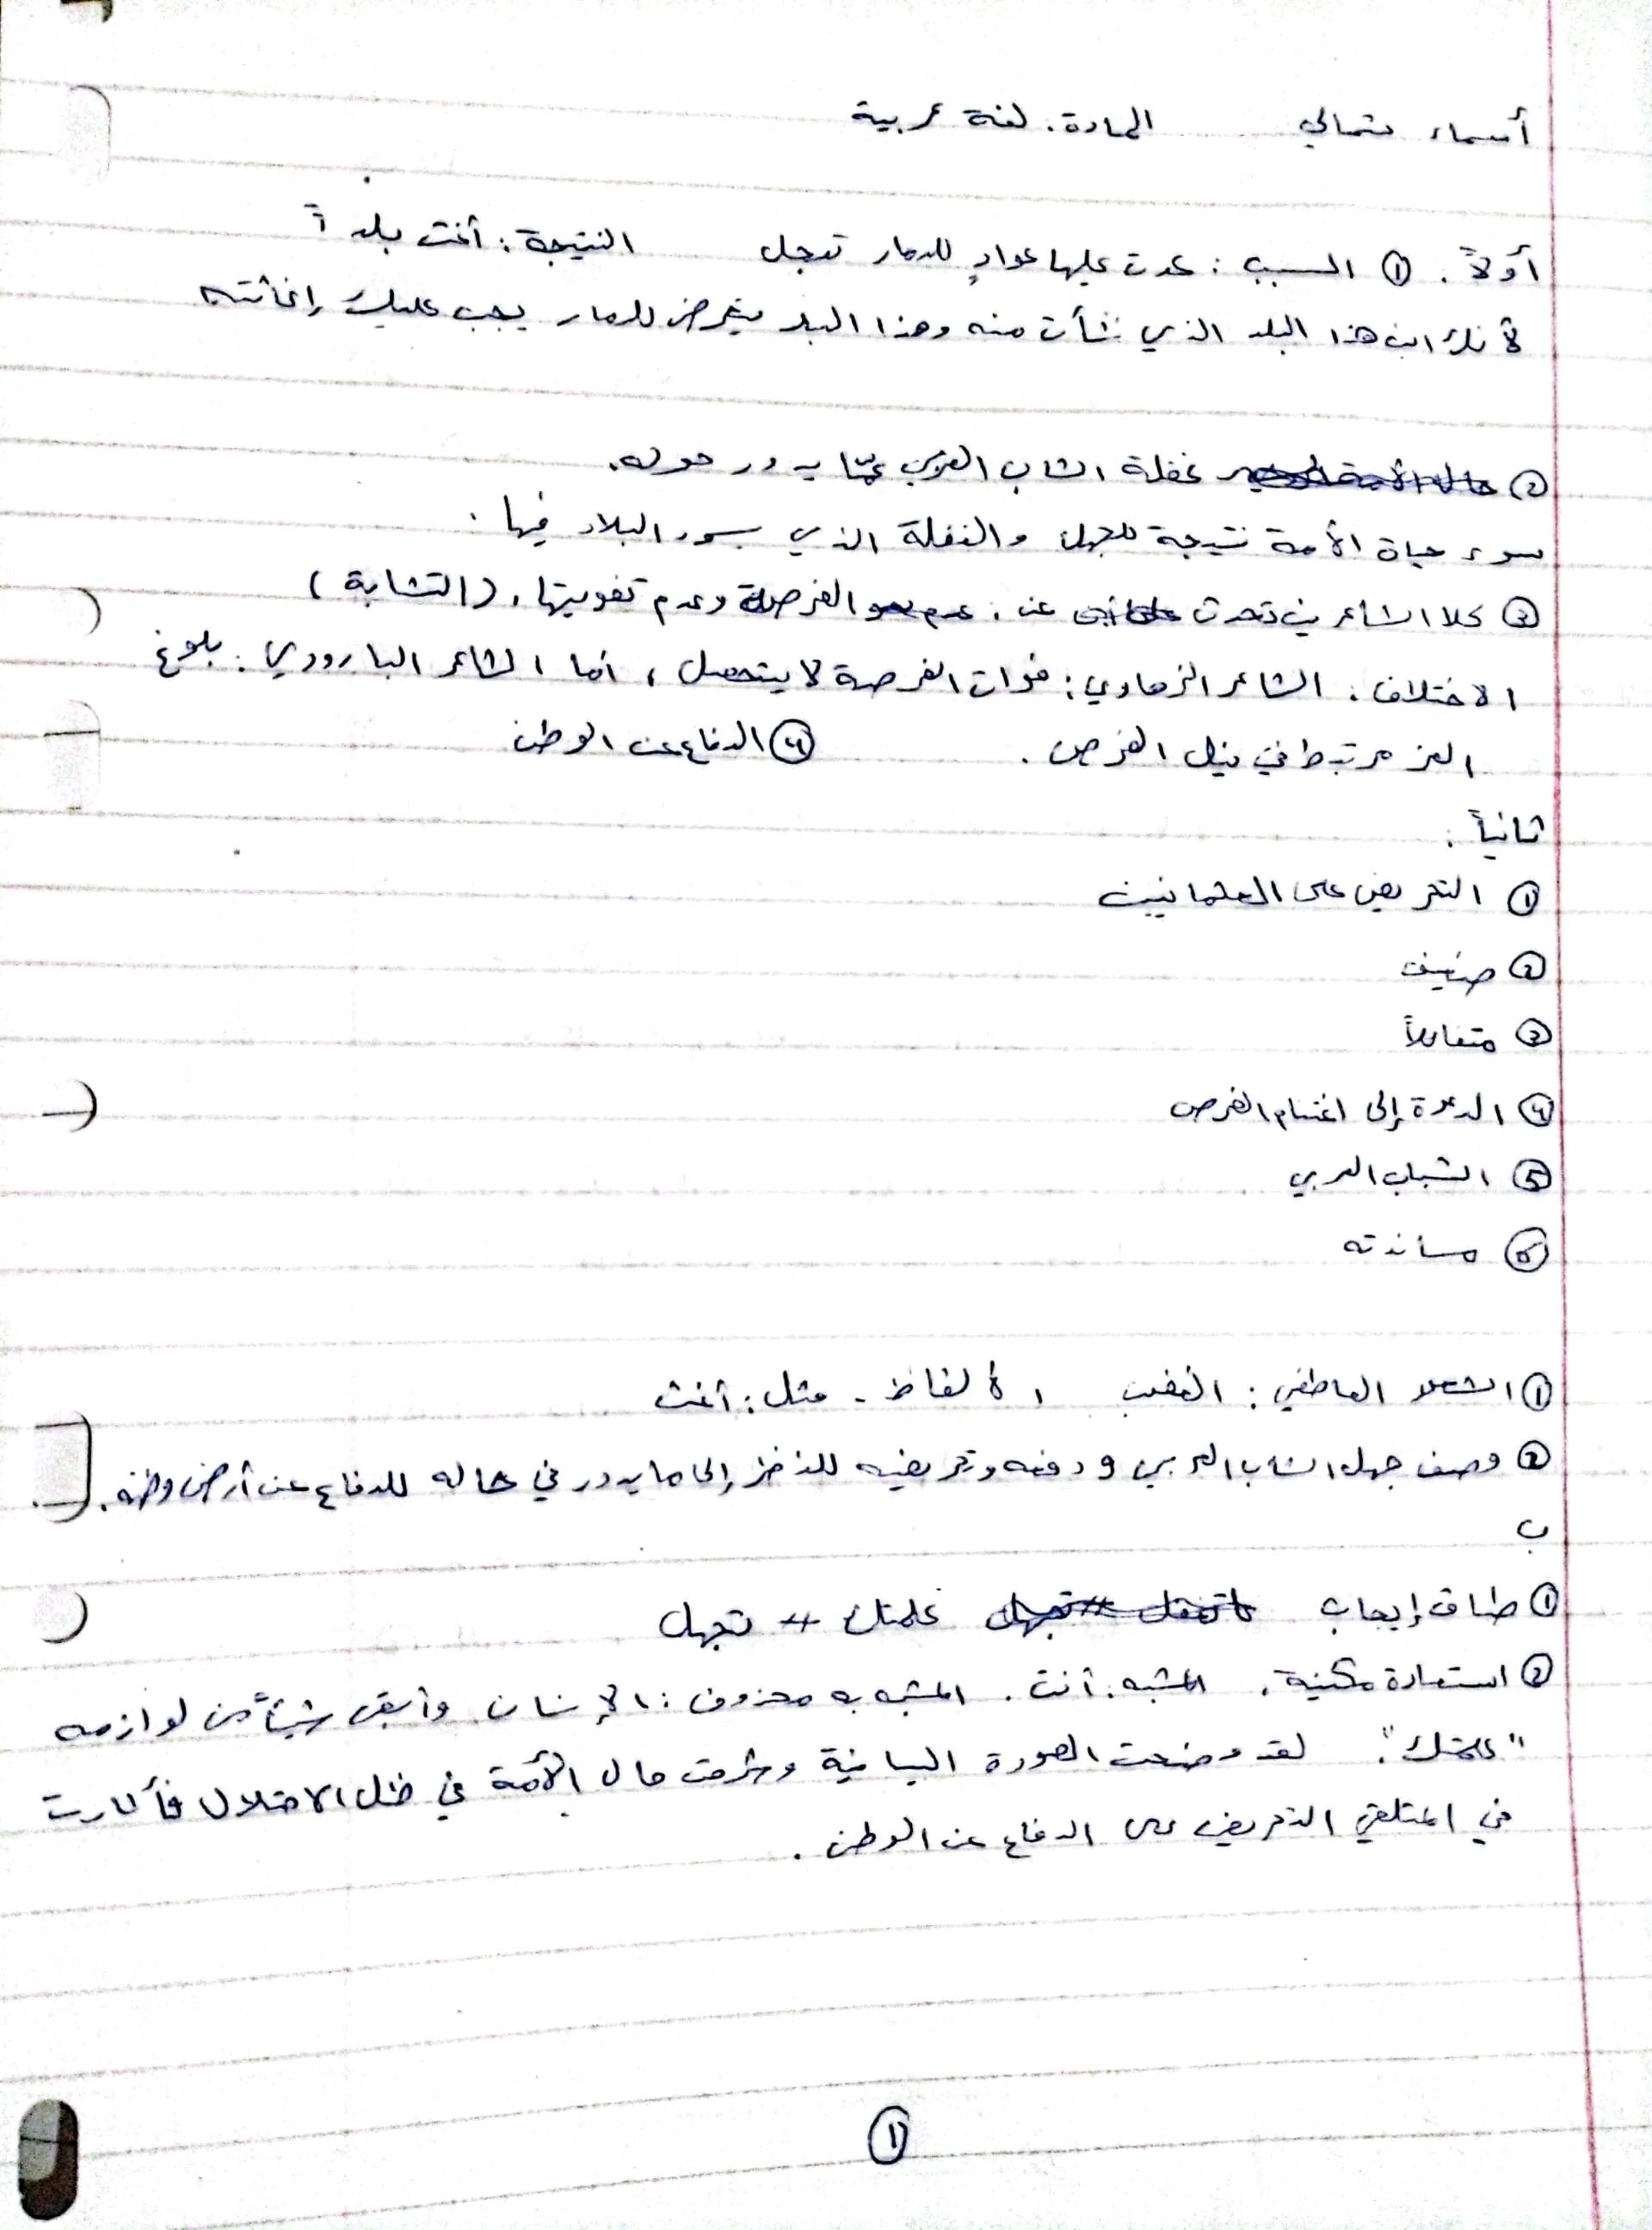 أسماء شمالي المادة: لغة عربية
أولاً. ① السبب: عدت عليها عوادٍ للدمار تعجل النتيجة: أغث بلداً
لأنك ابن هذا البلد الذي نشأت منه وهذا البلد يتعرض للدمار يجب عليك إغاثته
② غفلة الشاب العربي عمّا يدور حوله.
سوء حياة الأمة نتيجة للجهل والغفلة الذي يسود البلاد فيها.
③ كلا الشاعرين تحدث عن: الفرصة وعدم تفويتها. (التشابة)
الاختلاف: الشاعر الزهاوي: فوات الفرصة لا يتحصل، أما الشاعر البارودي: بلوغ
العز مرتبط في نيل الفرص. ④ الدفاع عن الوطن
ثانياً:
① التحريض على العثمانيين
②
③ متفائلاً
④ الدعوة إلى اغتنام الفرص
⑤ الشباب العربي
⑥ مساندته
① العاطفي: الغضب الألفاظ - مثل: أغث
② وصف جهل الشاب العربي و دفعه وتحريضه للنظر إلى ما يدور في حاله للدفاع عن أرض وطنه.
ب
① طباق إيجاب علمتك # تجهل
② استعارة مكنية. المشبه: أنت. المشبه به محذوف: الإنسان وأبقى شيئاً من لوازمه
"علمتك". لقد وضحت الصورة البيانية وشرحت حال الأمة في ظل الاحتلال فأثارت
في المتلقي التحريض على الدفاع عن الوطن.
①